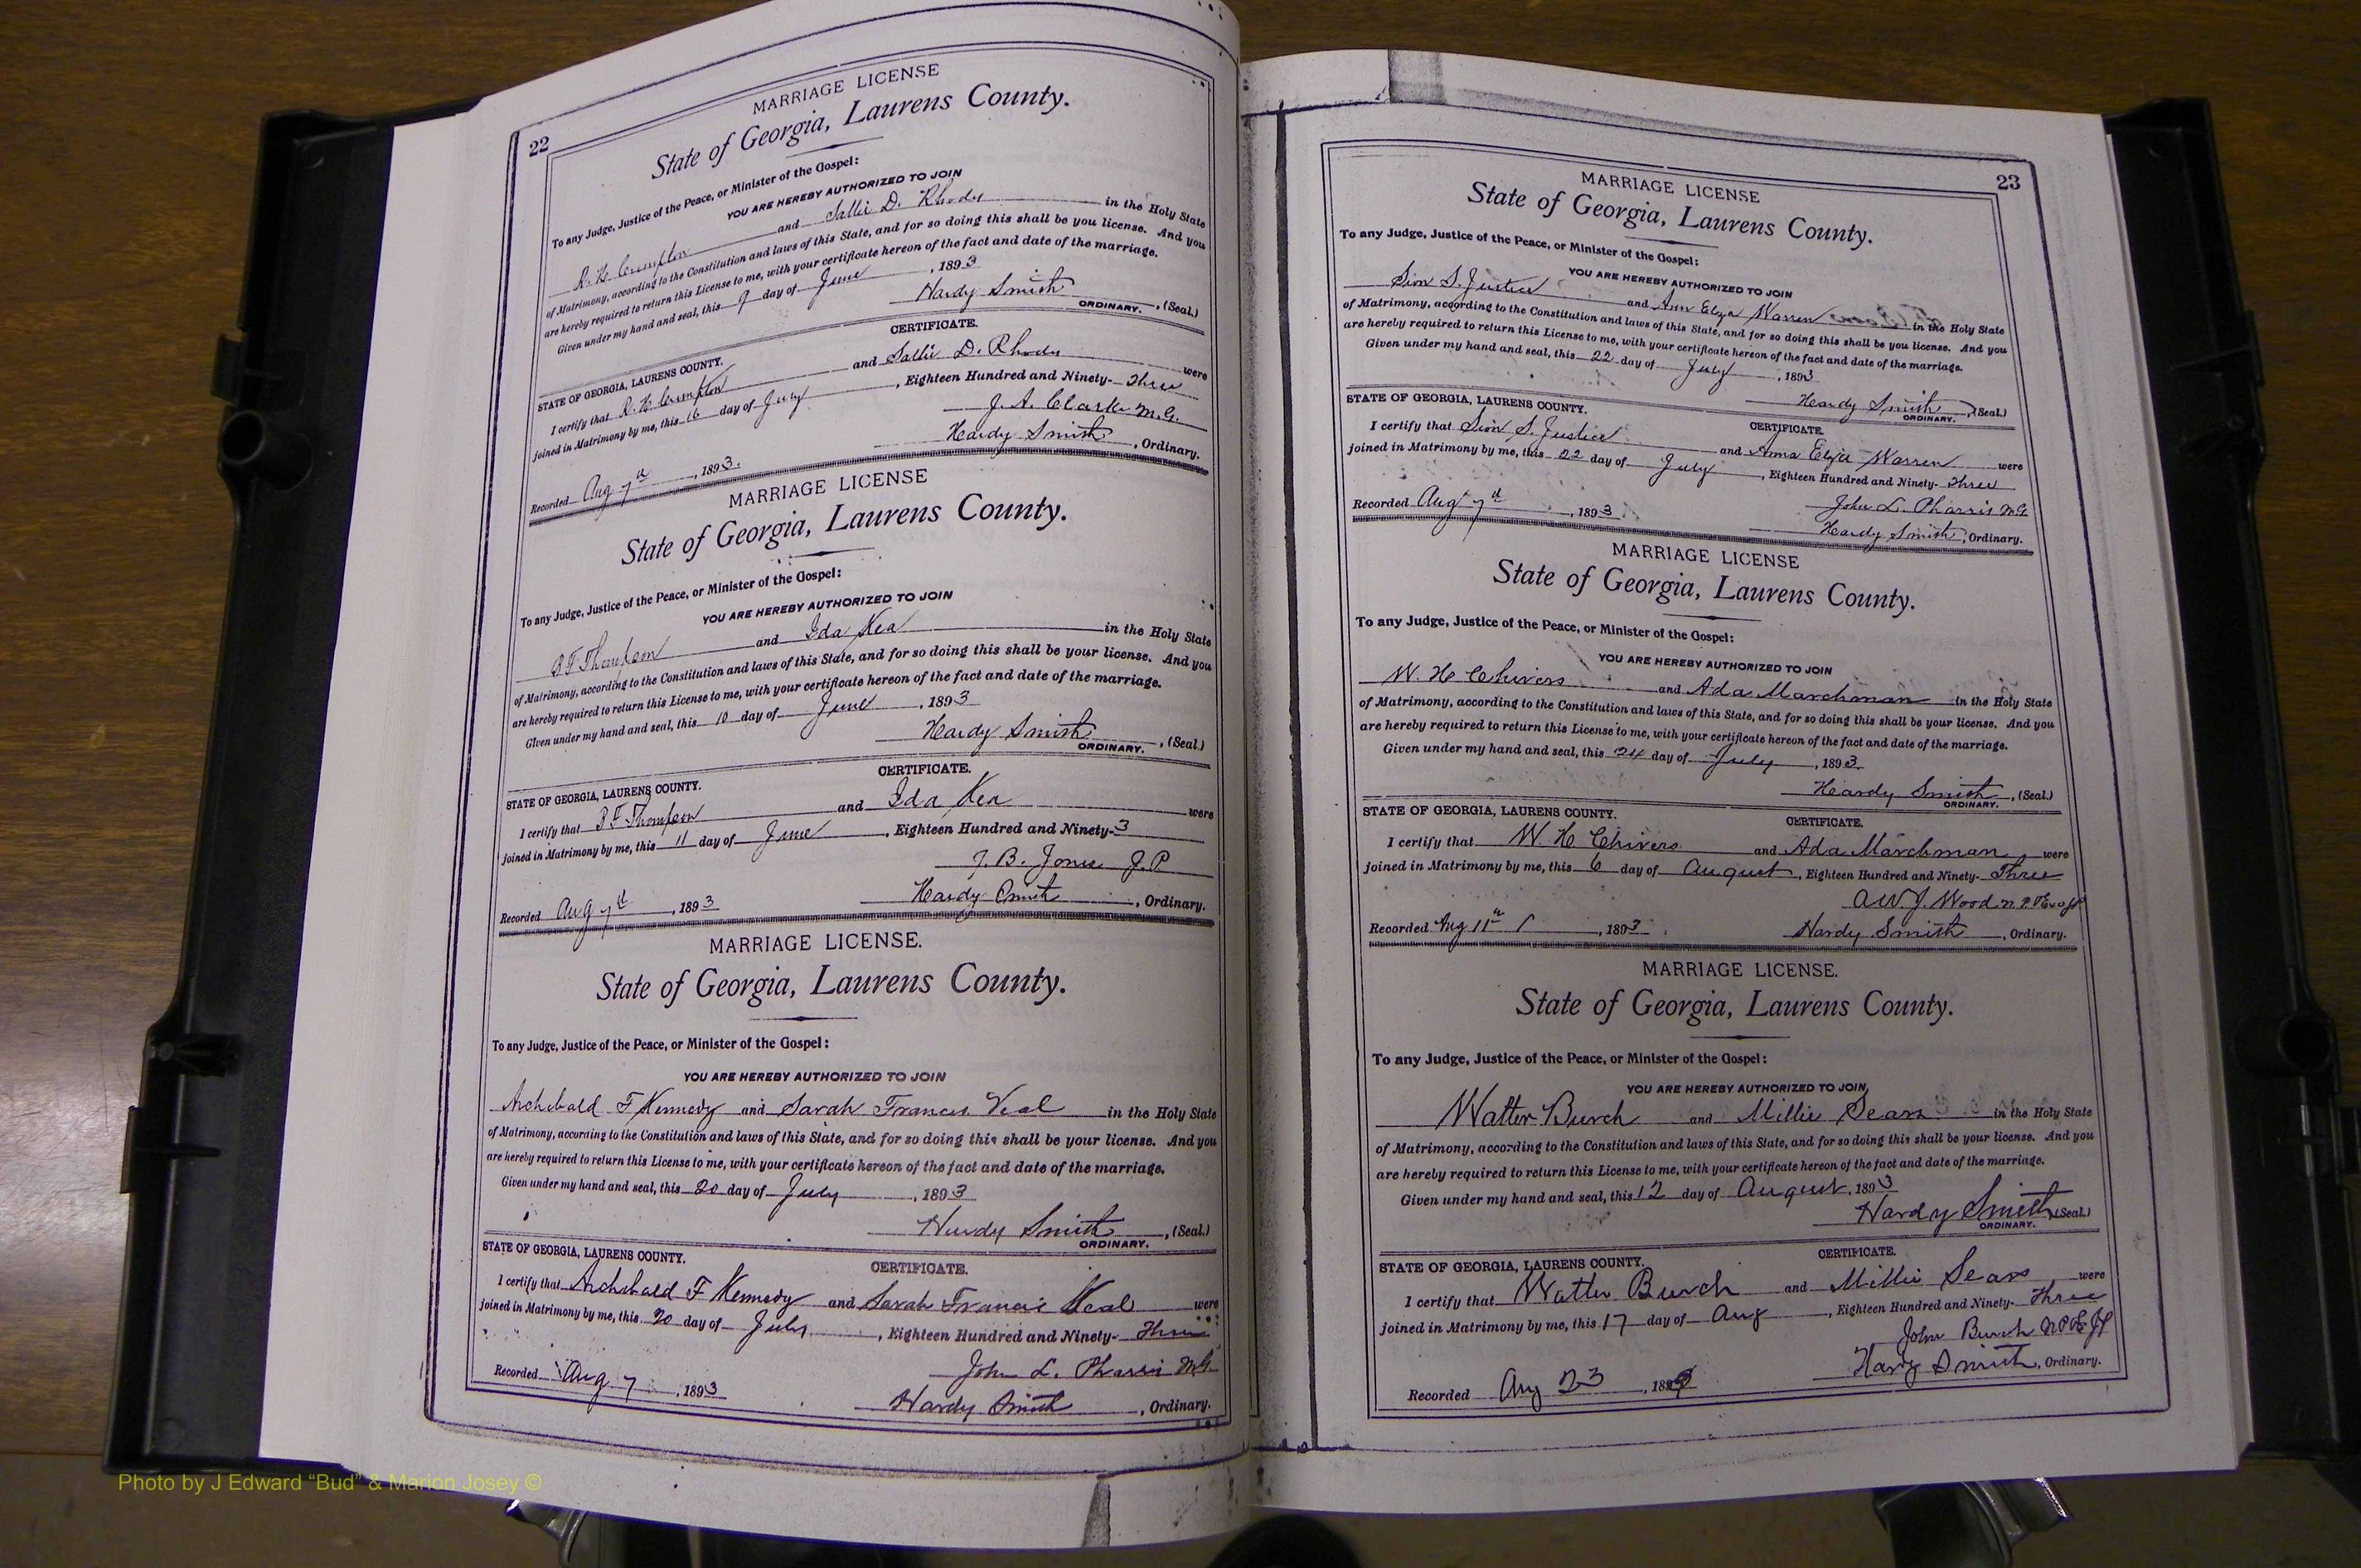 22
MARRIAGE LICENSE
State of Georgia, Laurens County.
To any Judge, Justice of the Peace, or Minister of the Gospel:
YOU ARE HEREBY AUTHORIZED TO JOIN
R. H. Crumpton and Sallie D. Rhody in the Holy State
of Matrimony, according to the Constitution and laws of this State, and for so doing this shall be you license. And you
are hereby required to return this License to me, with your certificate hereon of the fact and date of the marriage.
Given under my hand and seal, this 9 day of June, 1893
Hardy Smith, (Seal.)
ORDINARY.
CERTIFICATE.
STATE OF GEORGIA, LAURENS COUNTY.
I certify that R. H. Crumpton and Sallie D. Rhody were
joined in Matrimony by me, this 16 day of July, Eighteen Hundred and Ninety-Three
J. A. Clark M.G.
Recorded Aug 7th, 1893. Hardy Smith, Ordinary.
MARRIAGE LICENSE
State of Georgia, Laurens County.
To any Judge, Justice of the Peace, or Minister of the Gospel:
YOU ARE HEREBY AUTHORIZED TO JOIN
F Thompson and Ida Kea in the Holy State
of Matrimony, according to the Constitution and laws of this State, and for so doing this shall be your license. And you
are hereby required to return this License to me, with your certificate hereon of the fact and date of the marriage.
Given under my hand and seal, this 10 day of June, 1893
Hardy Smith, (Seal.)
ORDINARY.
CERTIFICATE.
STATE OF GEORGIA, LAURENS COUNTY.
I certify that F Thompson and Ida Kea were
joined in Matrimony by me, this 11 day of June, Eighteen Hundred and Ninety-3
J. B. Jones J.P.
Recorded Aug 7th, 1893 Hardy Smith, Ordinary.
MARRIAGE LICENSE.
State of Georgia, Laurens County.
To any Judge, Justice of the Peace, or Minister of the Gospel:
YOU ARE HEREBY AUTHORIZED TO JOIN
Archibald F Kennedy and Sarah Frances Veal in the Holy State
of Matrimony, according to the Constitution and laws of this State, and for so doing this shall be your license. And you
are hereby required to return this License to me, with your certificate hereon of the fact and date of the marriage.
Given under my hand and seal, this 20 day of July, 1893
Hardy Smith, (Seal.)
ORDINARY.
STATE OF GEORGIA, LAURENS COUNTY.
CERTIFICATE.
I certify that Archibald F Kennedy and Sarah Francis Veal were
joined in Matrimony by me, this 20 day of July, Eighteen Hundred and Ninety-Three
John L. Pharris M.G.
Recorded Aug 7, 1893 Hardy Smith, Ordinary.
23
MARRIAGE LICENSE
State of Georgia, Laurens County.
To any Judge, Justice of the Peace, or Minister of the Gospel:
YOU ARE HEREBY AUTHORIZED TO JOIN
Sion S. Justice and Ann Eliza Warren in the Holy State
of Matrimony, according to the Constitution and laws of this State, and for so doing this shall be you license. And you
are hereby required to return this License to me, with your certificate hereon of the fact and date of the marriage.
Given under my hand and seal, this 22 day of July, 1893
Hardy Smith, (Seal.)
ORDINARY.
STATE OF GEORGIA, LAURENS COUNTY.
CERTIFICATE.
I certify that Sion S. Justice and Anna Eliza Warren were
joined in Matrimony by me, this 22 day of July, Eighteen Hundred and Ninety-Three
John L. Pharris M.G.
Recorded Aug 7th, 1893 Hardy Smith, Ordinary.
MARRIAGE LICENSE
State of Georgia, Laurens County.
To any Judge, Justice of the Peace, or Minister of the Gospel:
YOU ARE HEREBY AUTHORIZED TO JOIN
W. H. Chivers and Ada Marchman in the Holy State
of Matrimony, according to the Constitution and laws of this State, and for so doing this shall be your license. And you
are hereby required to return this License to me, with your certificate hereon of the fact and date of the marriage.
Given under my hand and seal, this 24 day of July, 1893
Hardy Smith, (Seal.)
ORDINARY.
STATE OF GEORGIA, LAURENS COUNTY.
CERTIFICATE.
I certify that W. H. Chivers and Ada Marchman were
joined in Matrimony by me, this 6 day of August, Eighteen Hundred and Ninety-Three
A.W.J. Wood
Recorded Aug 11th, 1893 Hardy Smith, Ordinary.
MARRIAGE LICENSE.
State of Georgia, Laurens County.
To any Judge, Justice of the Peace, or Minister of the Gospel:
YOU ARE HEREBY AUTHORIZED TO JOIN
Walter Burch and Millie Sears in the Holy State
of Matrimony, according to the Constitution and laws of this State, and for so doing this shall be your license. And you
are hereby required to return this License to me, with your certificate hereon of the fact and date of the marriage.
Given under my hand and seal, this 12 day of August, 1893
Hardy Smith (Seal.)
ORDINARY.
CERTIFICATE.
STATE OF GEORGIA, LAURENS COUNTY.
I certify that Walter Burch and Millie Sears were
joined in Matrimony by me, this 17 day of Aug, Eighteen Hundred and Ninety-Three
John Burch
Recorded Aug 23, 1893 Hardy Smith, Ordinary.
Photo by J Edward “Bud” & Marion Josey ©